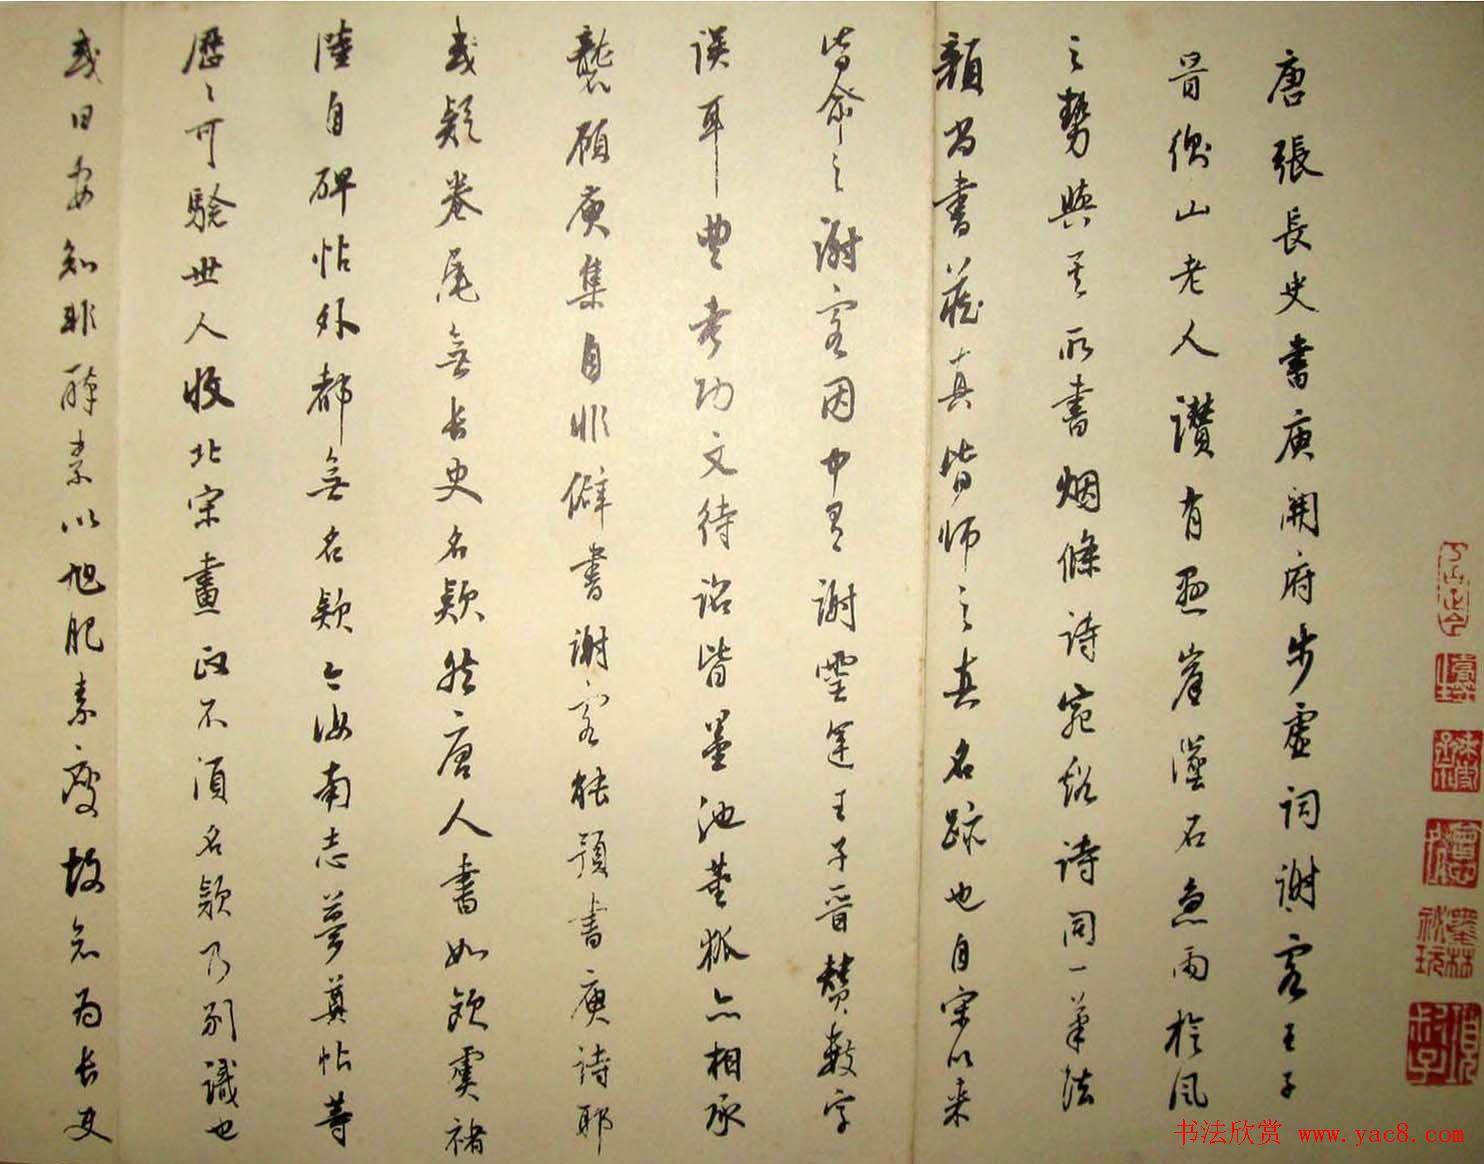 唐張長史書庾開府步虛詞謝客王子
晉衡山老人讚有懸崖墜石急雨旋風
之勢與其所書烟條詩宛谿詩同一筆法
顏尚書藏真皆師之真名跡也自宋以來
皆命之謝客因中有謝靈運王子晉贊數字
誤耳豐考功文待詔皆墨池董狐亦相承
襲顧庾集自非僻書謝客能預書庾詩耶
或疑卷尾無長史名款然唐人書如歐虞褚
陸自碑帖外都無名款今汝南志夢奠帖等
歷〻可驗世人收北宋畫政不須名款乃別識也
或曰安知非醉素以旭肥素瘦故定為長史
墨林祕玩
項叔子
书法欣赏 www.yac8.com